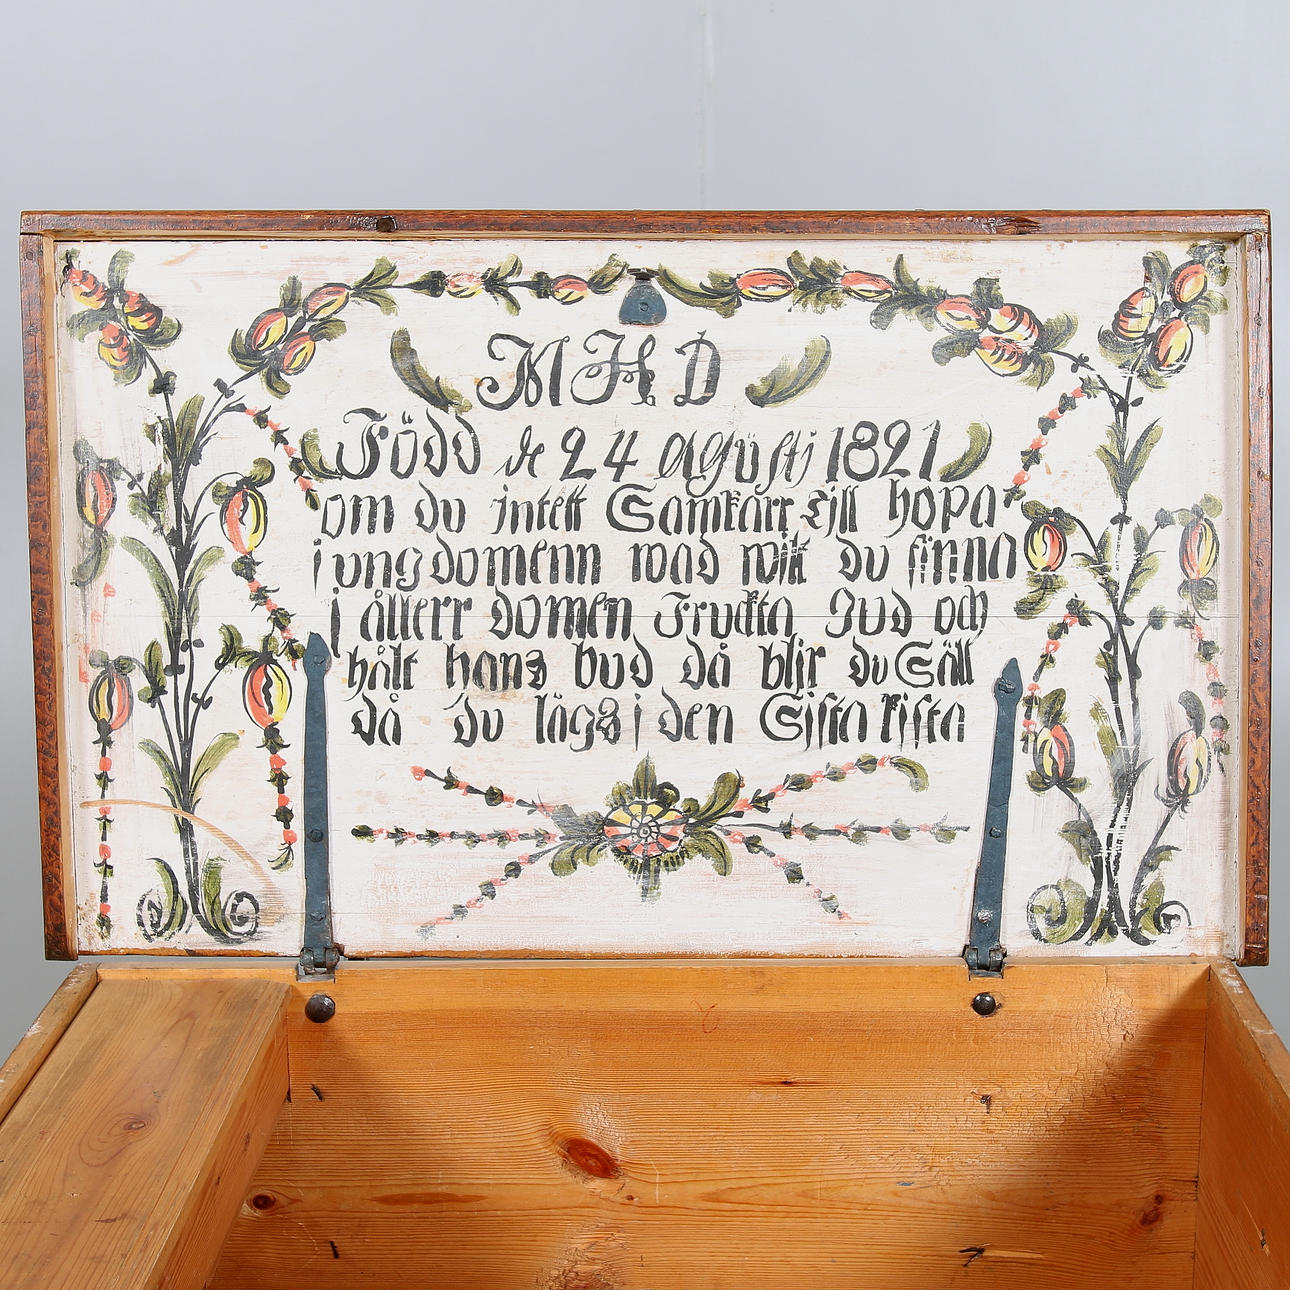 M H D
Född de 24 Agüsti 1821
om du intett Samkarr till hopa
i ungdomenn wad wilt du finna
i ållerr domen Fruckta Gud och
hålt hans bud då blir du Säll
då du lågs i den Sista kista